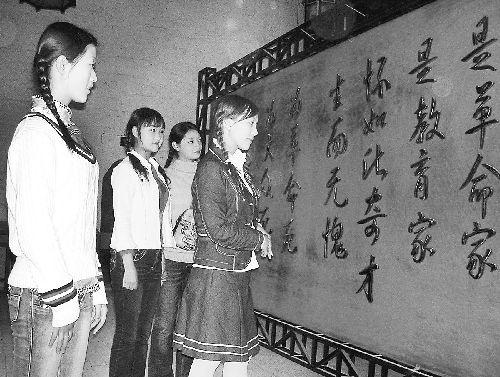 是革命家
是教育家
怀如此奇才
生而无愧
为革命
大众